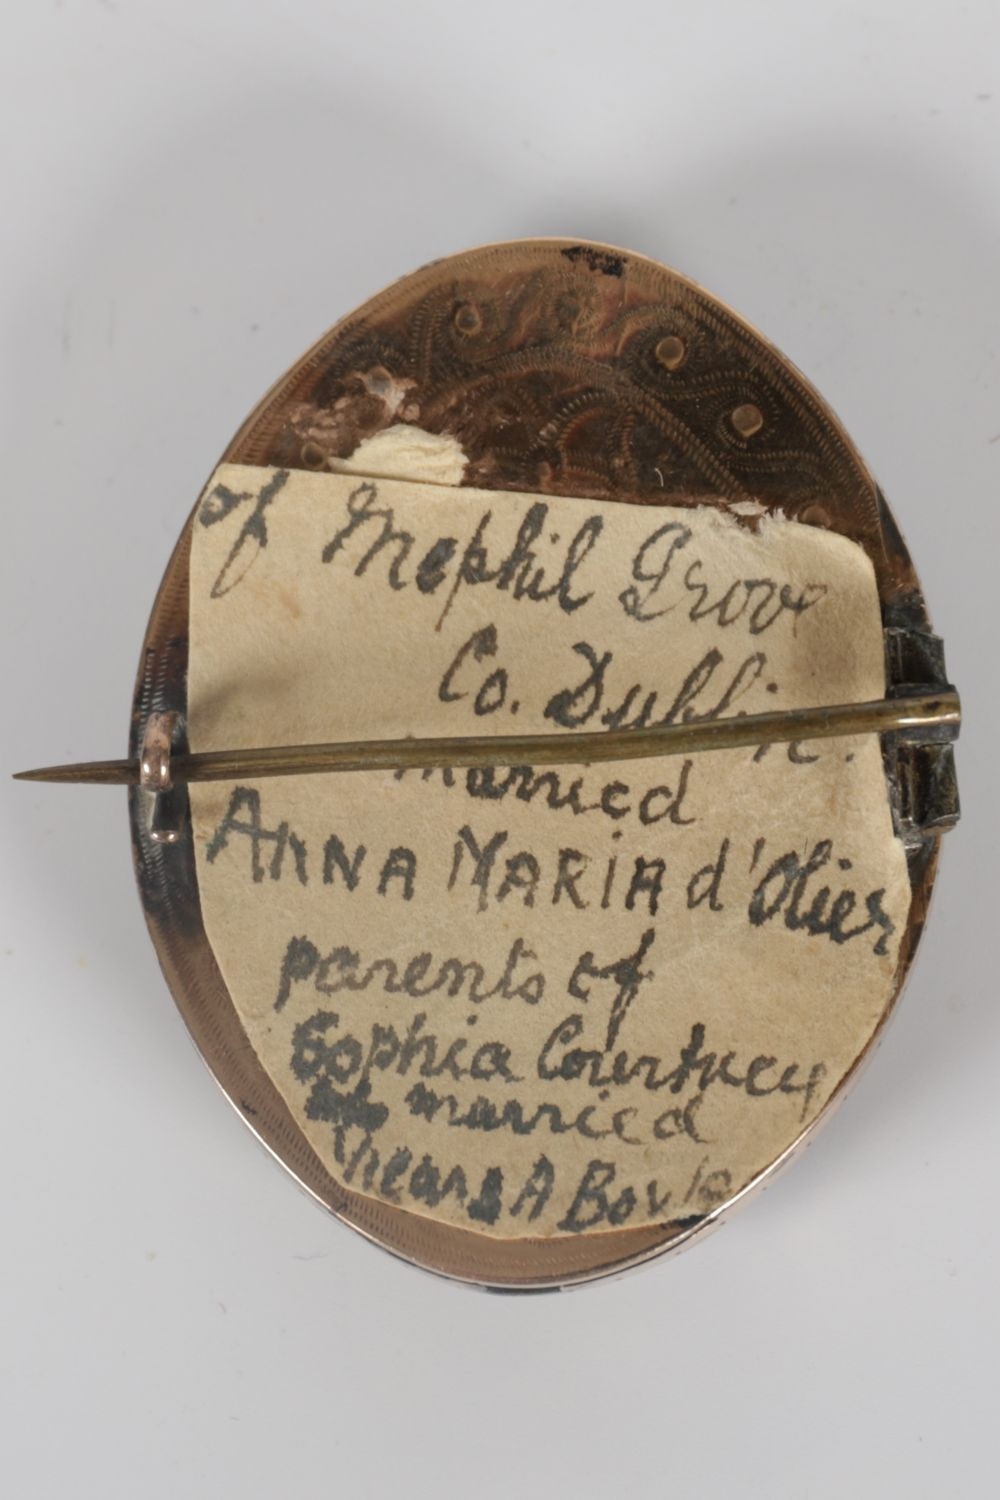 of Mephil Grove
Co. Dublin.
married
ANNA MARIA d'Olier
parents of
Sophia Courtney
married
A Boyle